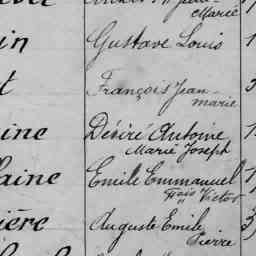 Marie
in
Gustave Louis
t
François Jean
marie
ine
Désiré Antoine
Marie Joseph
aine
Emile Emmanuel
Frois Victor
ière
Auguste Emile
Pierre